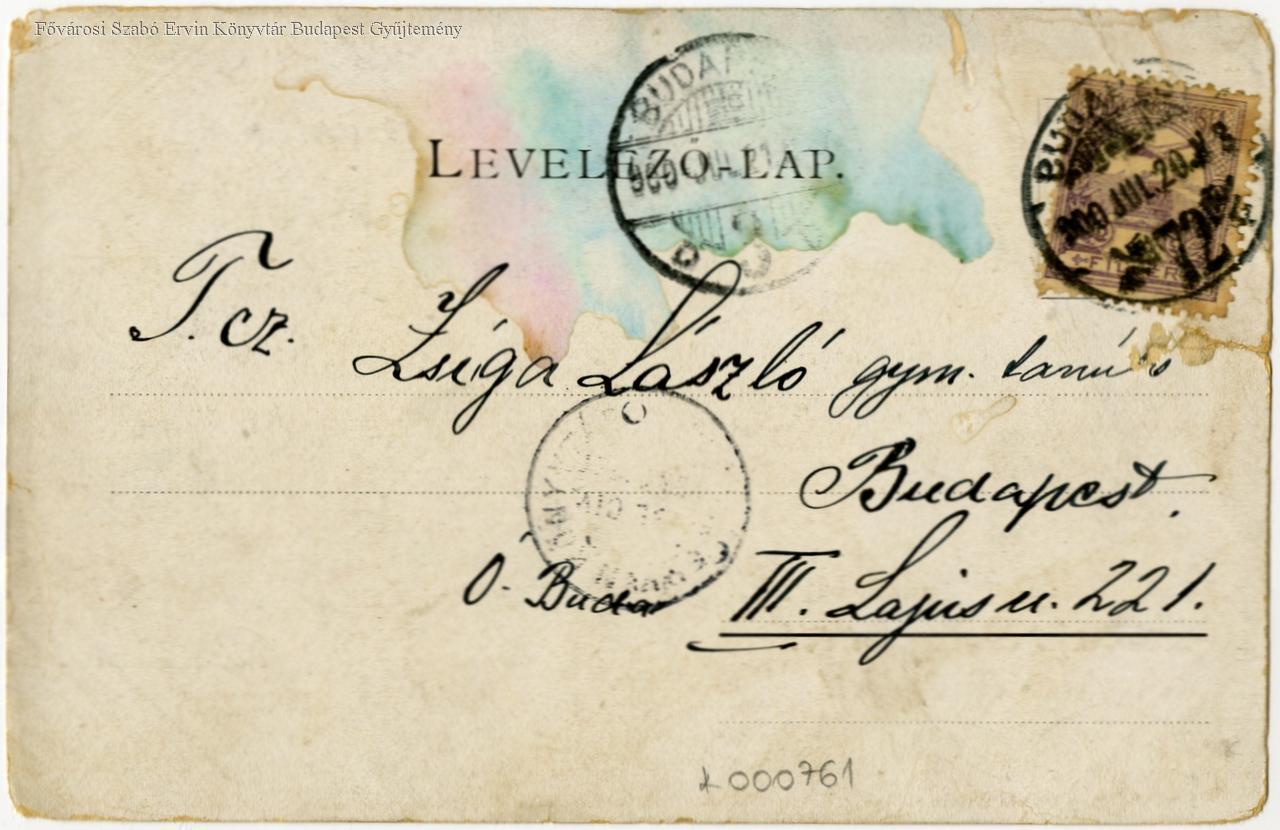 Fővárosi Szabó Ervin Könyvtár Budapest Gyűjtemény
LEVELEZŐ-LAP.
BUDAP
BUDAPEST
900 JUL. 20.
FILLÉR
T. cz.
Zsiga László gym. tanuló
Budapest.
Ó-Buda III. Lajos u. 221.
000761